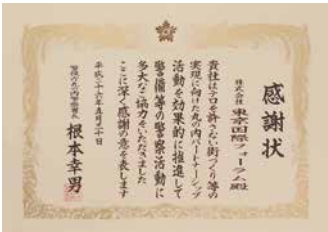 感謝状
株式会社 東京国際フォーラム殿
貴社はテロを許さない街づくり等の
実現に向けた丸の内パートナーシップ
活動を効果的に推進して
警備等の警察活動に
多大なご協力をいただきました
ここに深く感謝の意を表します
平成二十六年五月三十日
警視庁丸の内警察署長
根本幸男